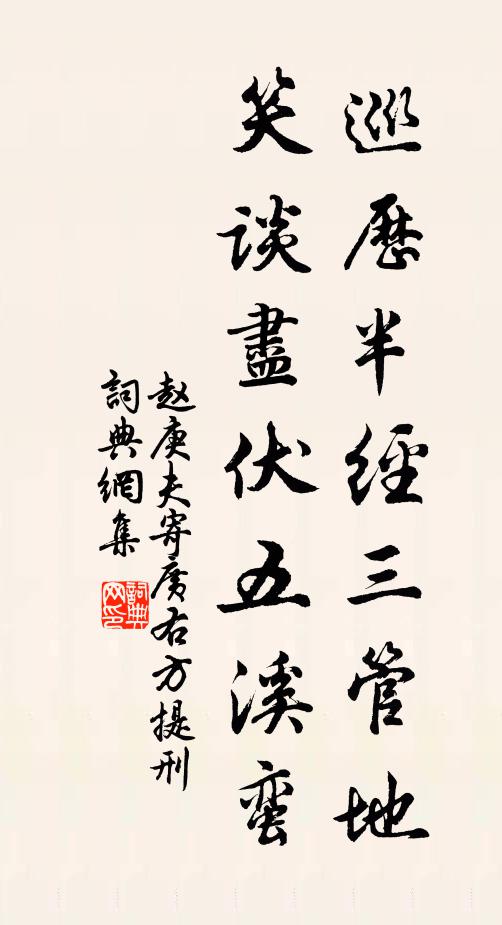 巡歷半經三管地
笑談盡伏五溪蛮
赵庚夫寄廣右方提刑
詞典網集
詞典网印